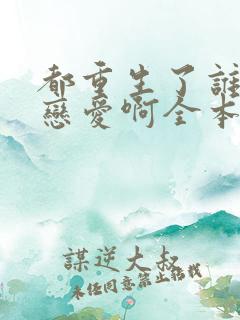 都重生了誰
戀愛啊全本
謀逆大叔
未經同意禁止轉載